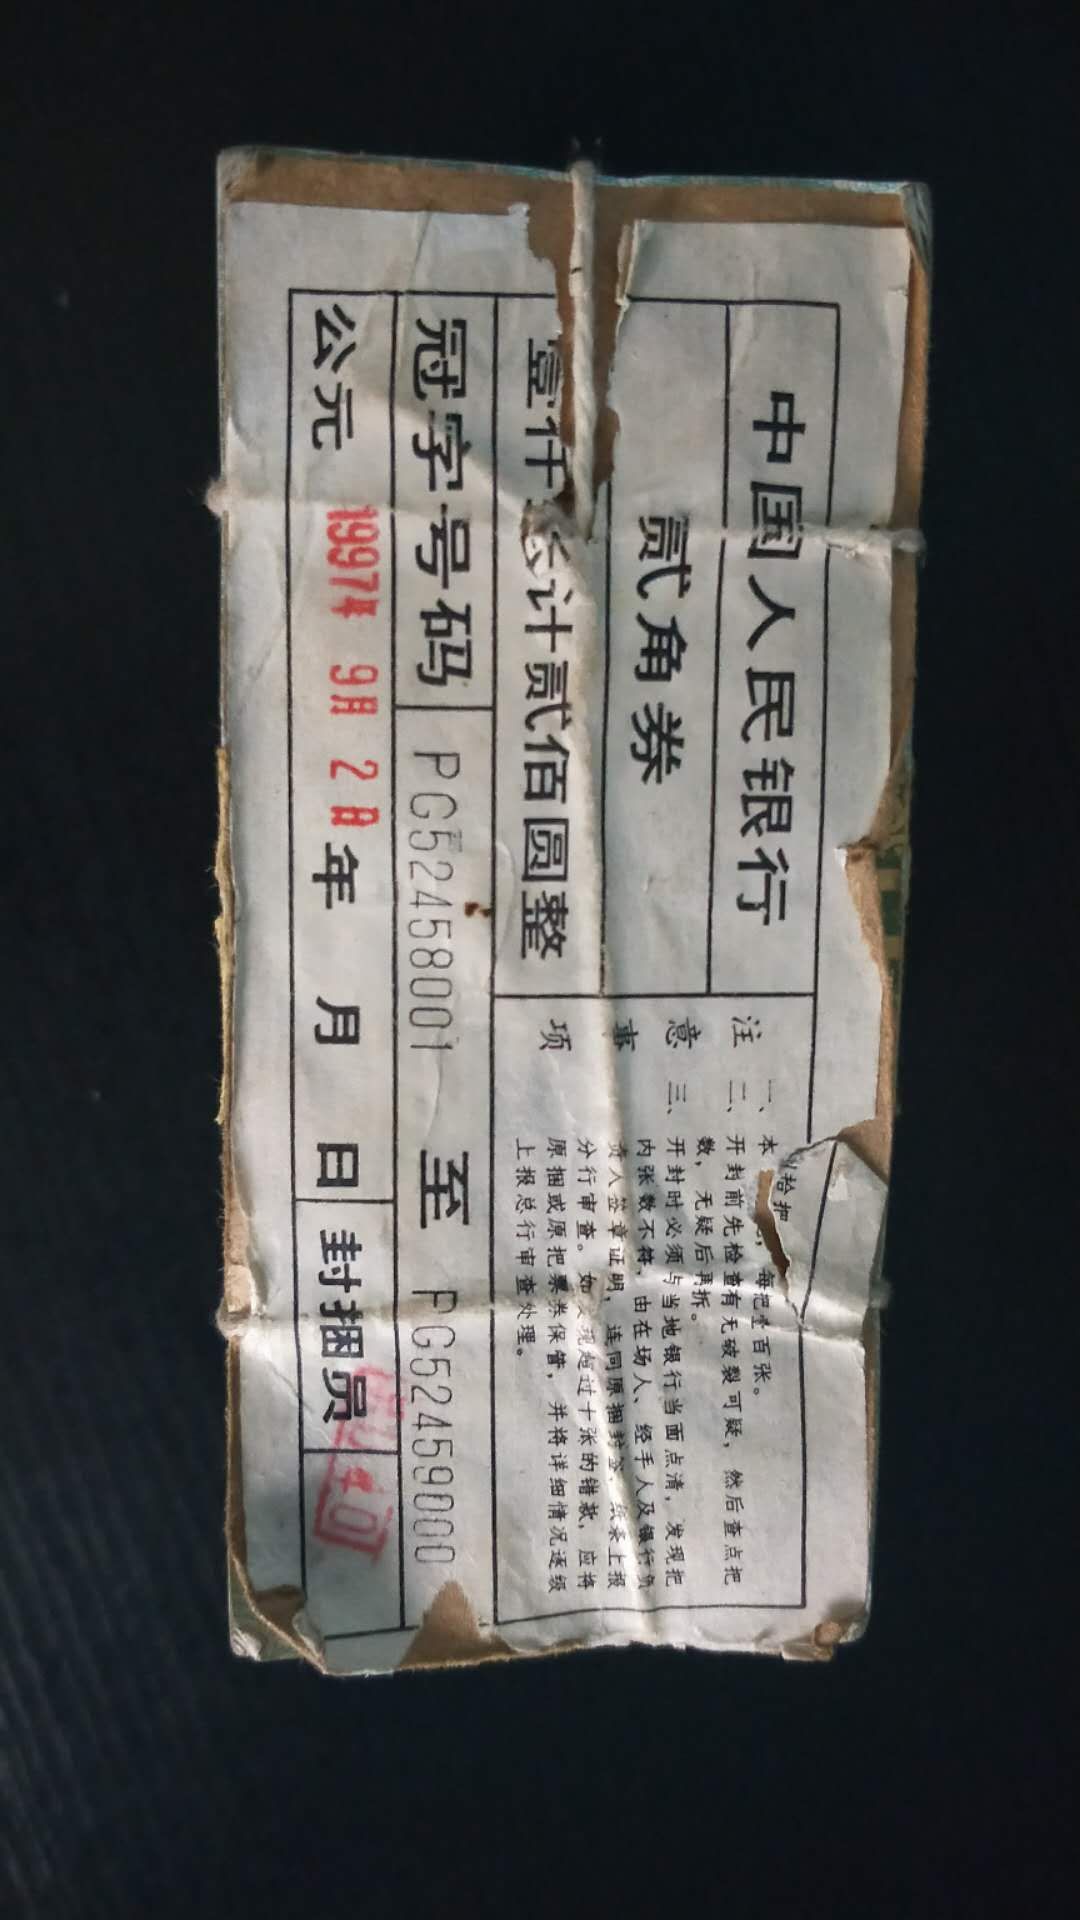 中国人民银行
贰角券
壹仟张计贰佰圆整
注意事项
一、本 拾把 每把壹百张。
二、开封前先检查有无破裂可疑，然后查点把
数，无疑后再拆。
三、开封时必须与当地银行当面点清，发现把
内张数不符，由在场人、经手人及银行负
责人签章证明，连同原捆封签、纸条上报
分行审查。如发现超过十张的错款，应将
原捆或原把票券保管，并将详细情况逐级
上报总行审查处理。
冠字号码 PG52458001 至 PG52459000
公元 年 月 日 封捆员
1997年 9月 2日